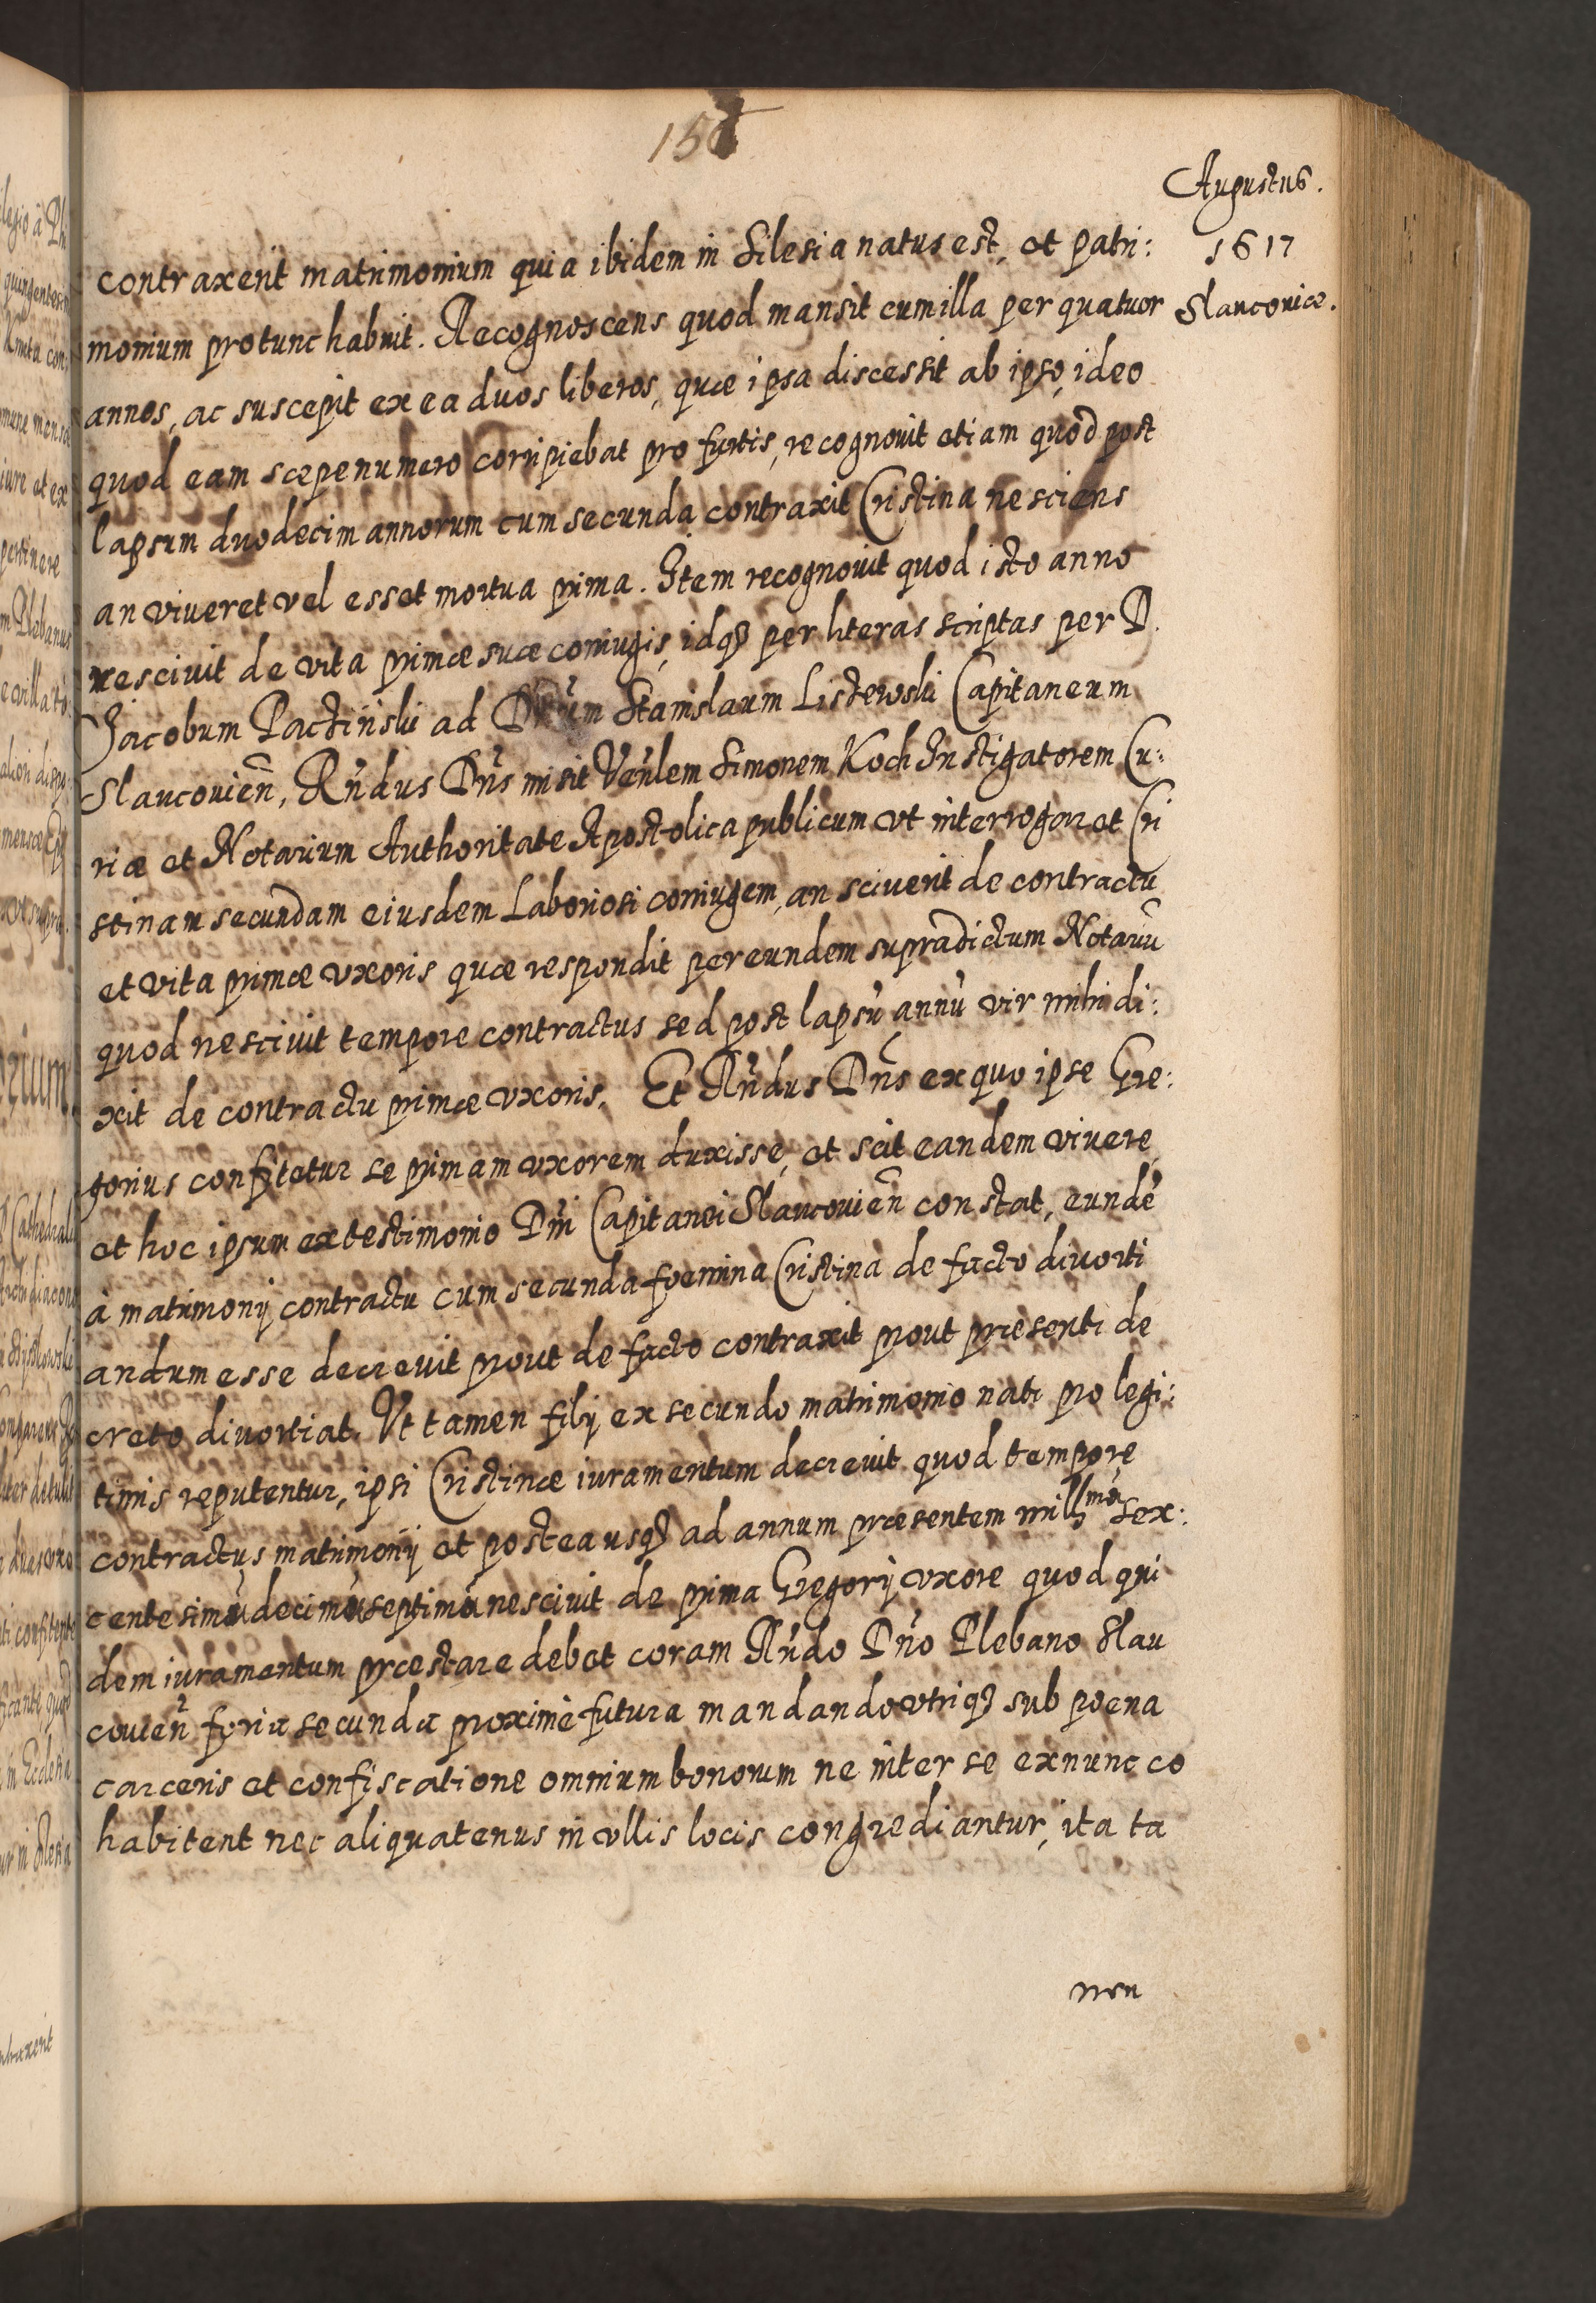 Augustus.
1617
Slauconiæ.
contraxerit matrimonium quia ibidem in Silesia natus est, et patri:
monium protunc habuit. Recognoscens quod mansit cum illa per quatuor
annos, ac suscepit ex ea duos liberos, quæ ipsa discessit ab ipso, ideo
quod eam sæpenumero corripiebat pro furtis, recognouit etiam quod post
lapsum duodecim annorum cum secunda contraxit Cristina nesciens
an viueret vel esset mortua prima. Item recognouit quod isto anno
resciuit de vita primæ suæ coniugis, idq3 per literas scriptas per D.
Jacobum Pactiński ad Dnum Stanislaum Listewski Capitaneum
Slaucouien̄, Rn̄dus Dn̄s misit Ven̄lem Simonem Koch Instigatorem Cu:
riæ et Notarium Authoritate Apostolica publicum vt interrogaret Cri
stinam secundam eiusdem Laboriosi coniugem, an sciuerit de contractu
et vita primæ vxoris quæ respondit per eundem supradictum Notariū
quod nesciuit tempore contractus sed post lapsū annū vir mihi di:
xit de contractu primæ vxoris. Et Rn̄dus Dn̄s ex quo ipse Gre:
gorius confitetur se primam vxorem duxisse, et scit eandem viuere,
et hoc ipsum ex testimonio Dn̄i Capitanei Slaucouien̄ constat, eundē
à matrimonij contractu cum secunda foemina Cristina de facto diuorti
andum esse decreuit prout de facto contraxit prout præsenti de
creto diuortiat. Vt tamen filij ex secundo matrimonio nati pro legi:
timis reputentur, ipsi Cristinæ iuramentum decreuit quod tempore
contractus matrimonij et postea usq3 ad annum præsentem mill̄mū sex:
centesimū decimū septimū nesciuit de prima Gregorij vxore quod qui
dem iuramentum præstare debet coram Rn̄do Dn̄o Plebano Slau
couien̄ feria secunda proximè futura mandando vtriq3 sub poena
carceris et confiscatione omnium bonorum ne inter se exnunc co
habitent nec aliquatenus in vllis locis congrediantur, ita ta
men